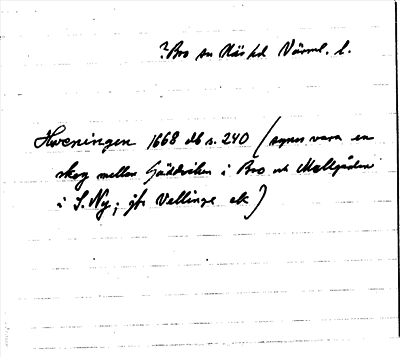 ? Bro sn Näs hd Värml. l.
Hweningen 1668 db s. 240 (synes vara en
skog mellan Gäddviken i Bro och Mellgården
i S. Ny; jfr Vellinge ek)